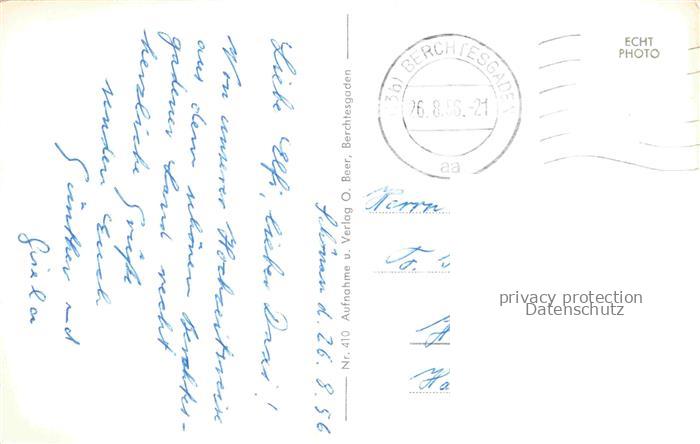 Schönau d. 26.8.56
Liebe Elfi, lieber Dani!
Von unserer Hochzeitsreise
aus dem schönen Berchtes-
gadener Land recht
herzliche Grüße
senden Euch
Günther und
Gisela
Nr. 410 Aufnahme u. Verlag O. Beer, Berchtesgaden
(13b) BERCHTESGADEN
26.8.56.-21
aa
ECHT
PHOTO
Herrn
privacy protection
Datenschutz